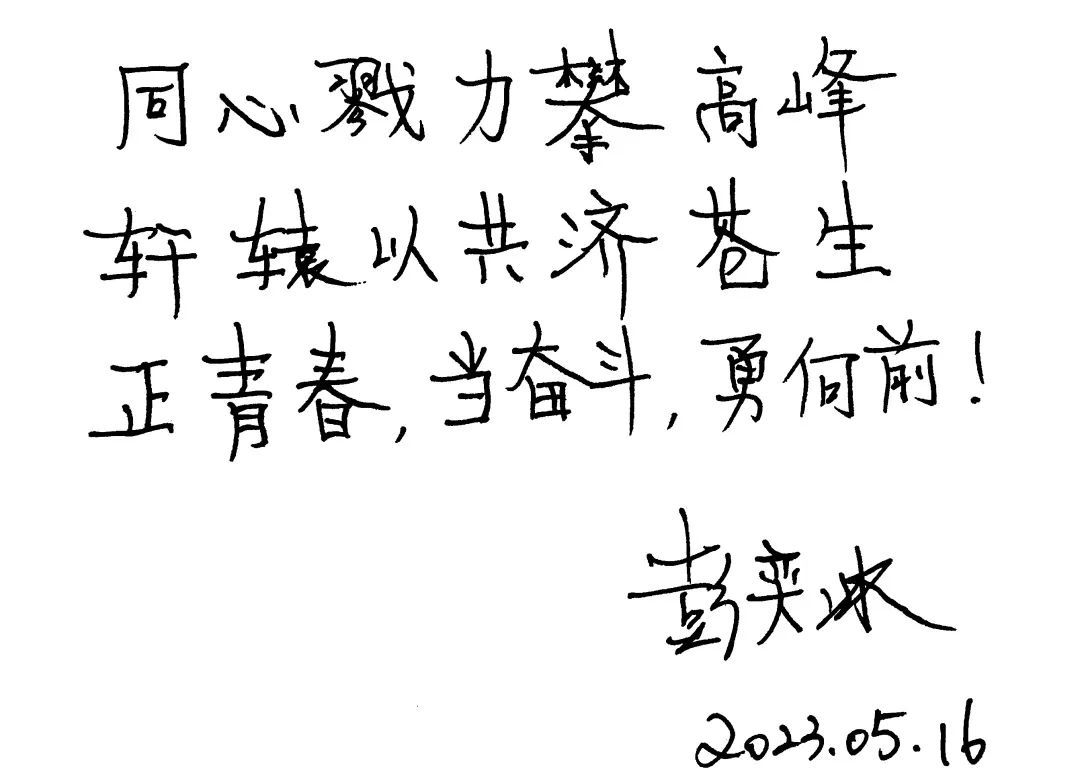 同心戮力攀高峰
轩辕以共济苍生
正青春,当奋斗,勇何前!
彭奕冰
2023.05.16